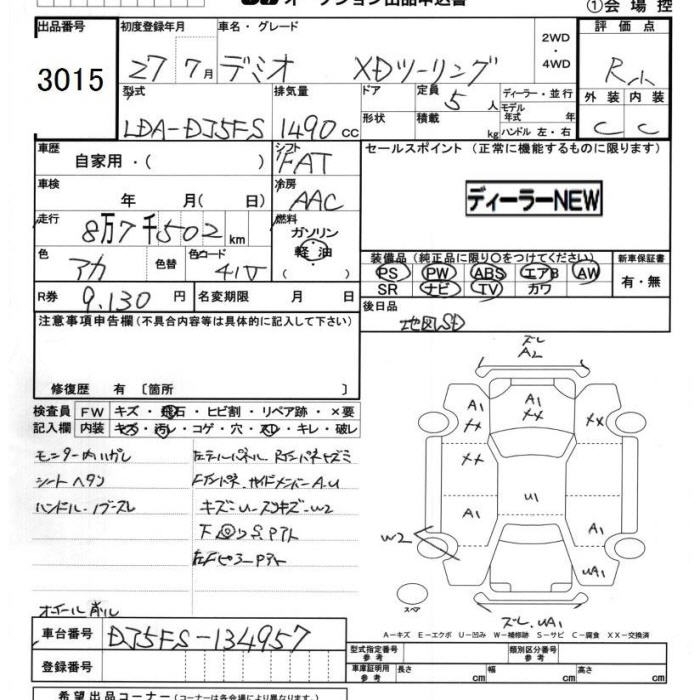 オークション出品申込書
①会場控
出品番号
3015
初度登録年月
27 7月
車名・グレード
デミオ XDツーリング
2WD
・
4WD
評価点
R小
外装 内装
C C
型式
LDA-DJ5FS
排気量
1490 cc
ドア
形状
定員
5 人
積載
kg
ディーラー・並行
モデル
年式 年
ハンドル 左・右
車歴
自家用・( )
シフト
FAT
セールスポイント (正常に機能するものに限ります)
ディーラーNEW
車検
年 月( 日)
冷房
AAC
走行
8万7千502 km
燃料
ガソリン
軽油
( )
色
アカ
色替
色コード
41V
装備品 (純正品に限り〇をつけてください)
PS PW ABS エアB AW
SR ナビ TV カワ
新車保証書
有・無
R券 9,130 円
名変期限 月 日
後日品
地図SD
注意事項申告欄 (不具合内容等は具体的に記入して下さい)
修復歴 有 〔箇所 〕
検査員 FW キズ・飛石・ヒビ割・リペア跡・×要
記入欄 内装 キズ・汚レ・コゲ・穴・スレ・キレ・破レ
モニター内ハガレ
シートヘタリ
ハンドル・ノブスレ
キズ一U一スリキズ一W2
ホイール削ル
ズレ
A2
A1
XX
A1
XX
XX
XX
A1
U1
A1
W2
UA1
スペア
ズレ、UA1
A-キズ E-エクボ U-凹み W-補修跡 S-サビ C-腐食 XX-交換済
車台番号 DJ5FS-134957
登録番号
型式指定番号
参考
類別区分番号
参考
車庫証明用
参考
長さ cm 幅 cm 高さ cm
希望出品コーナー (コーナーは各会場により異なります。)